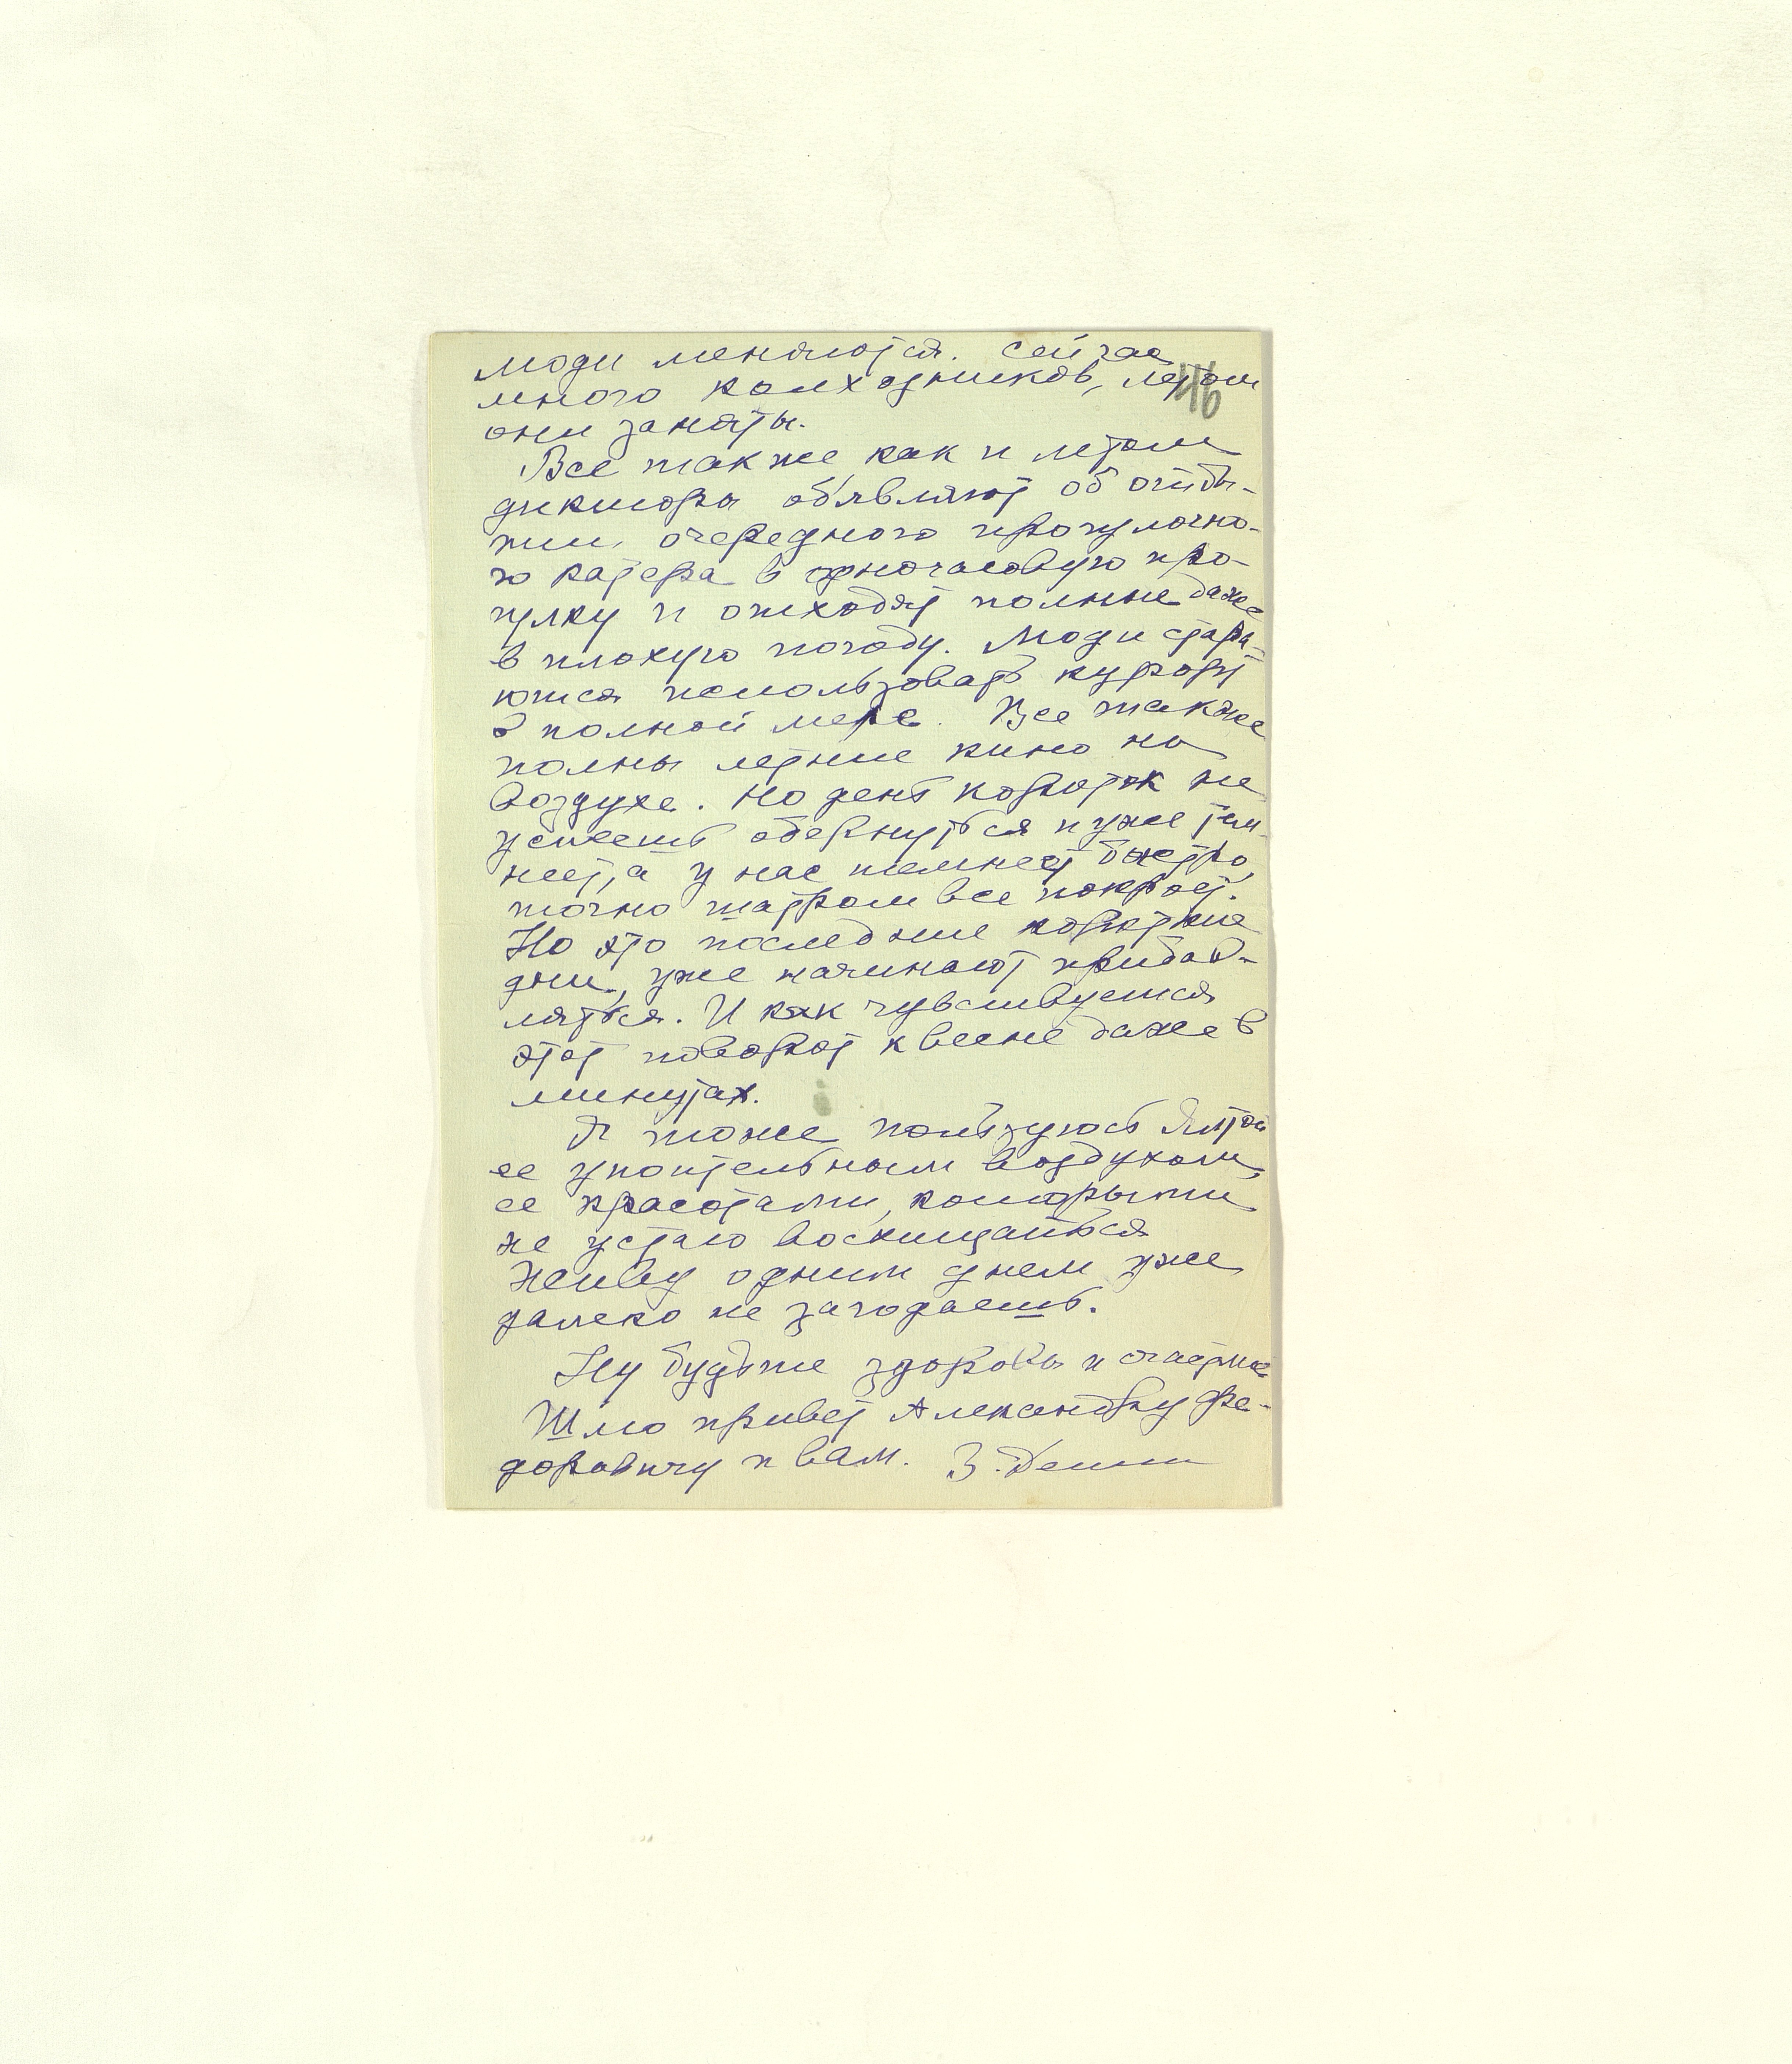 люди меняются. Сейчас
46
много колхозников, летом
они заняты.
Все также как и летом
диктора об'являют об отбы-
тии очередного прогулочно-
го катера в одночасовую про-
гулку и отходят полные даже
в плохую погоду. Люди стара-
ются использовать курорт
в полной мере. Все также
полны летние кино на
воздухе. Но день короток не
успеешь обернуться и уже тем-
неет, а у нас темнеет быстро,
точно шатром все покроет.
Но это последние короткие
дни, уже начинают прибав-
ляться. И как чувствуется
этот поворот к весне даже в
минутах.
Я тоже пользуюсь Ялтой
ее упоительным воздухом,
ее красотами, которыми
не устаю восхищаться
Живу одним днем уже
далеко не загадаешь.
Ну будьте здоровы и счастливы
Шлю привет Александру Фе-
доровичу и вам. З.